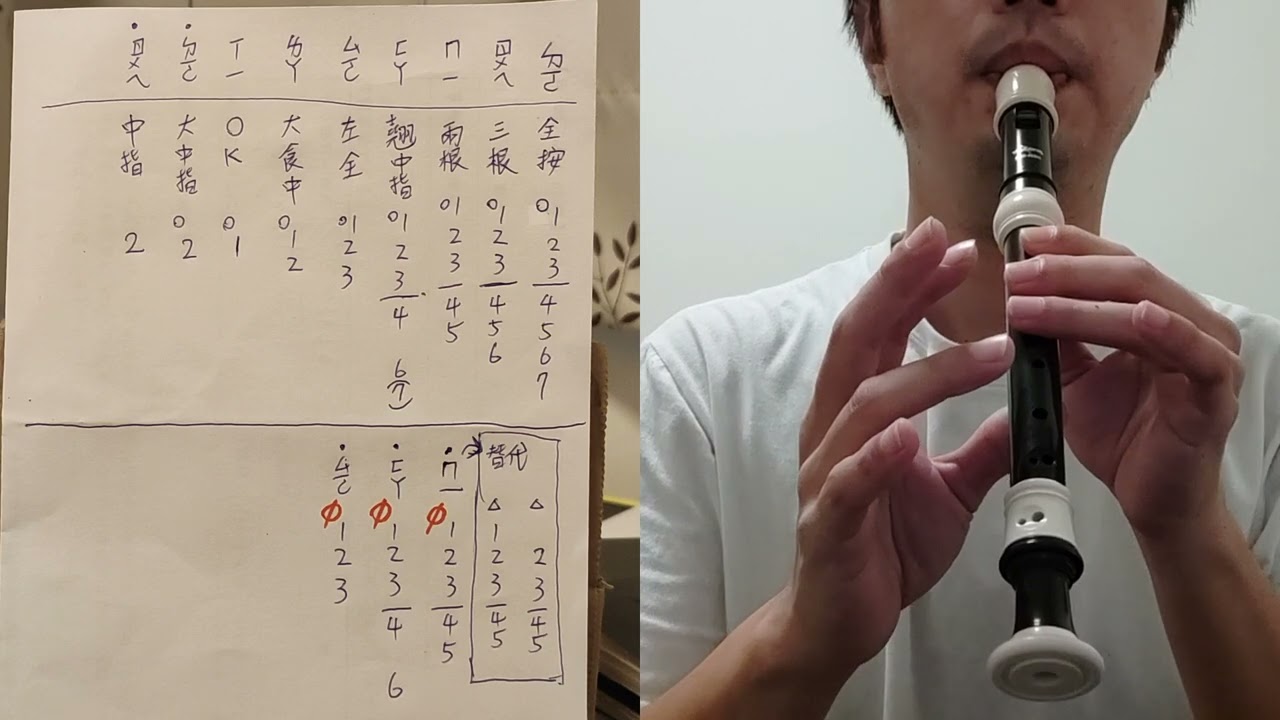 ㄉㄛ 全按 0 1 2 3 4 5 6 7
ㄖㄨㄟ 三根 0 1 2 3 4 5 6
ㄇㄧ 兩根 0 1 2 3 4 5
ㄈㄚ 翹中指 0 1 2 3 4 6 (7)
ㄙㄛ 左全 0 1 2 3
ㄌㄚ 大食中 0 1 2
ㄒㄧ OK 0 1
•ㄉㄛ 大中指 0 2
•ㄖㄨㄟ 中指 2
替代
△ 2 3 4 5
△ 1 2 3 4 5
•ㄇㄧ Ø 1 2 3 4 5
•ㄈㄚ Ø 1 2 3 4 6
•ㄙㄛ Ø 1 2 3